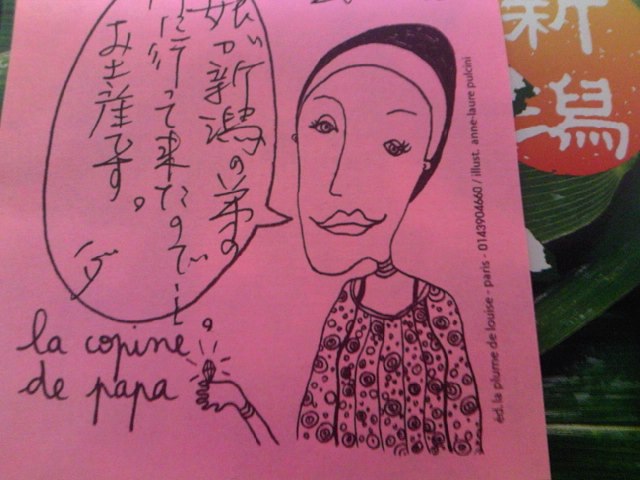 娘が新潟の弟の
に行って来たので、
お土産です。
la copine
de papa
éd. la plume de louise - paris - 0143904660 / illust. anne-laure pulcini
新
潟